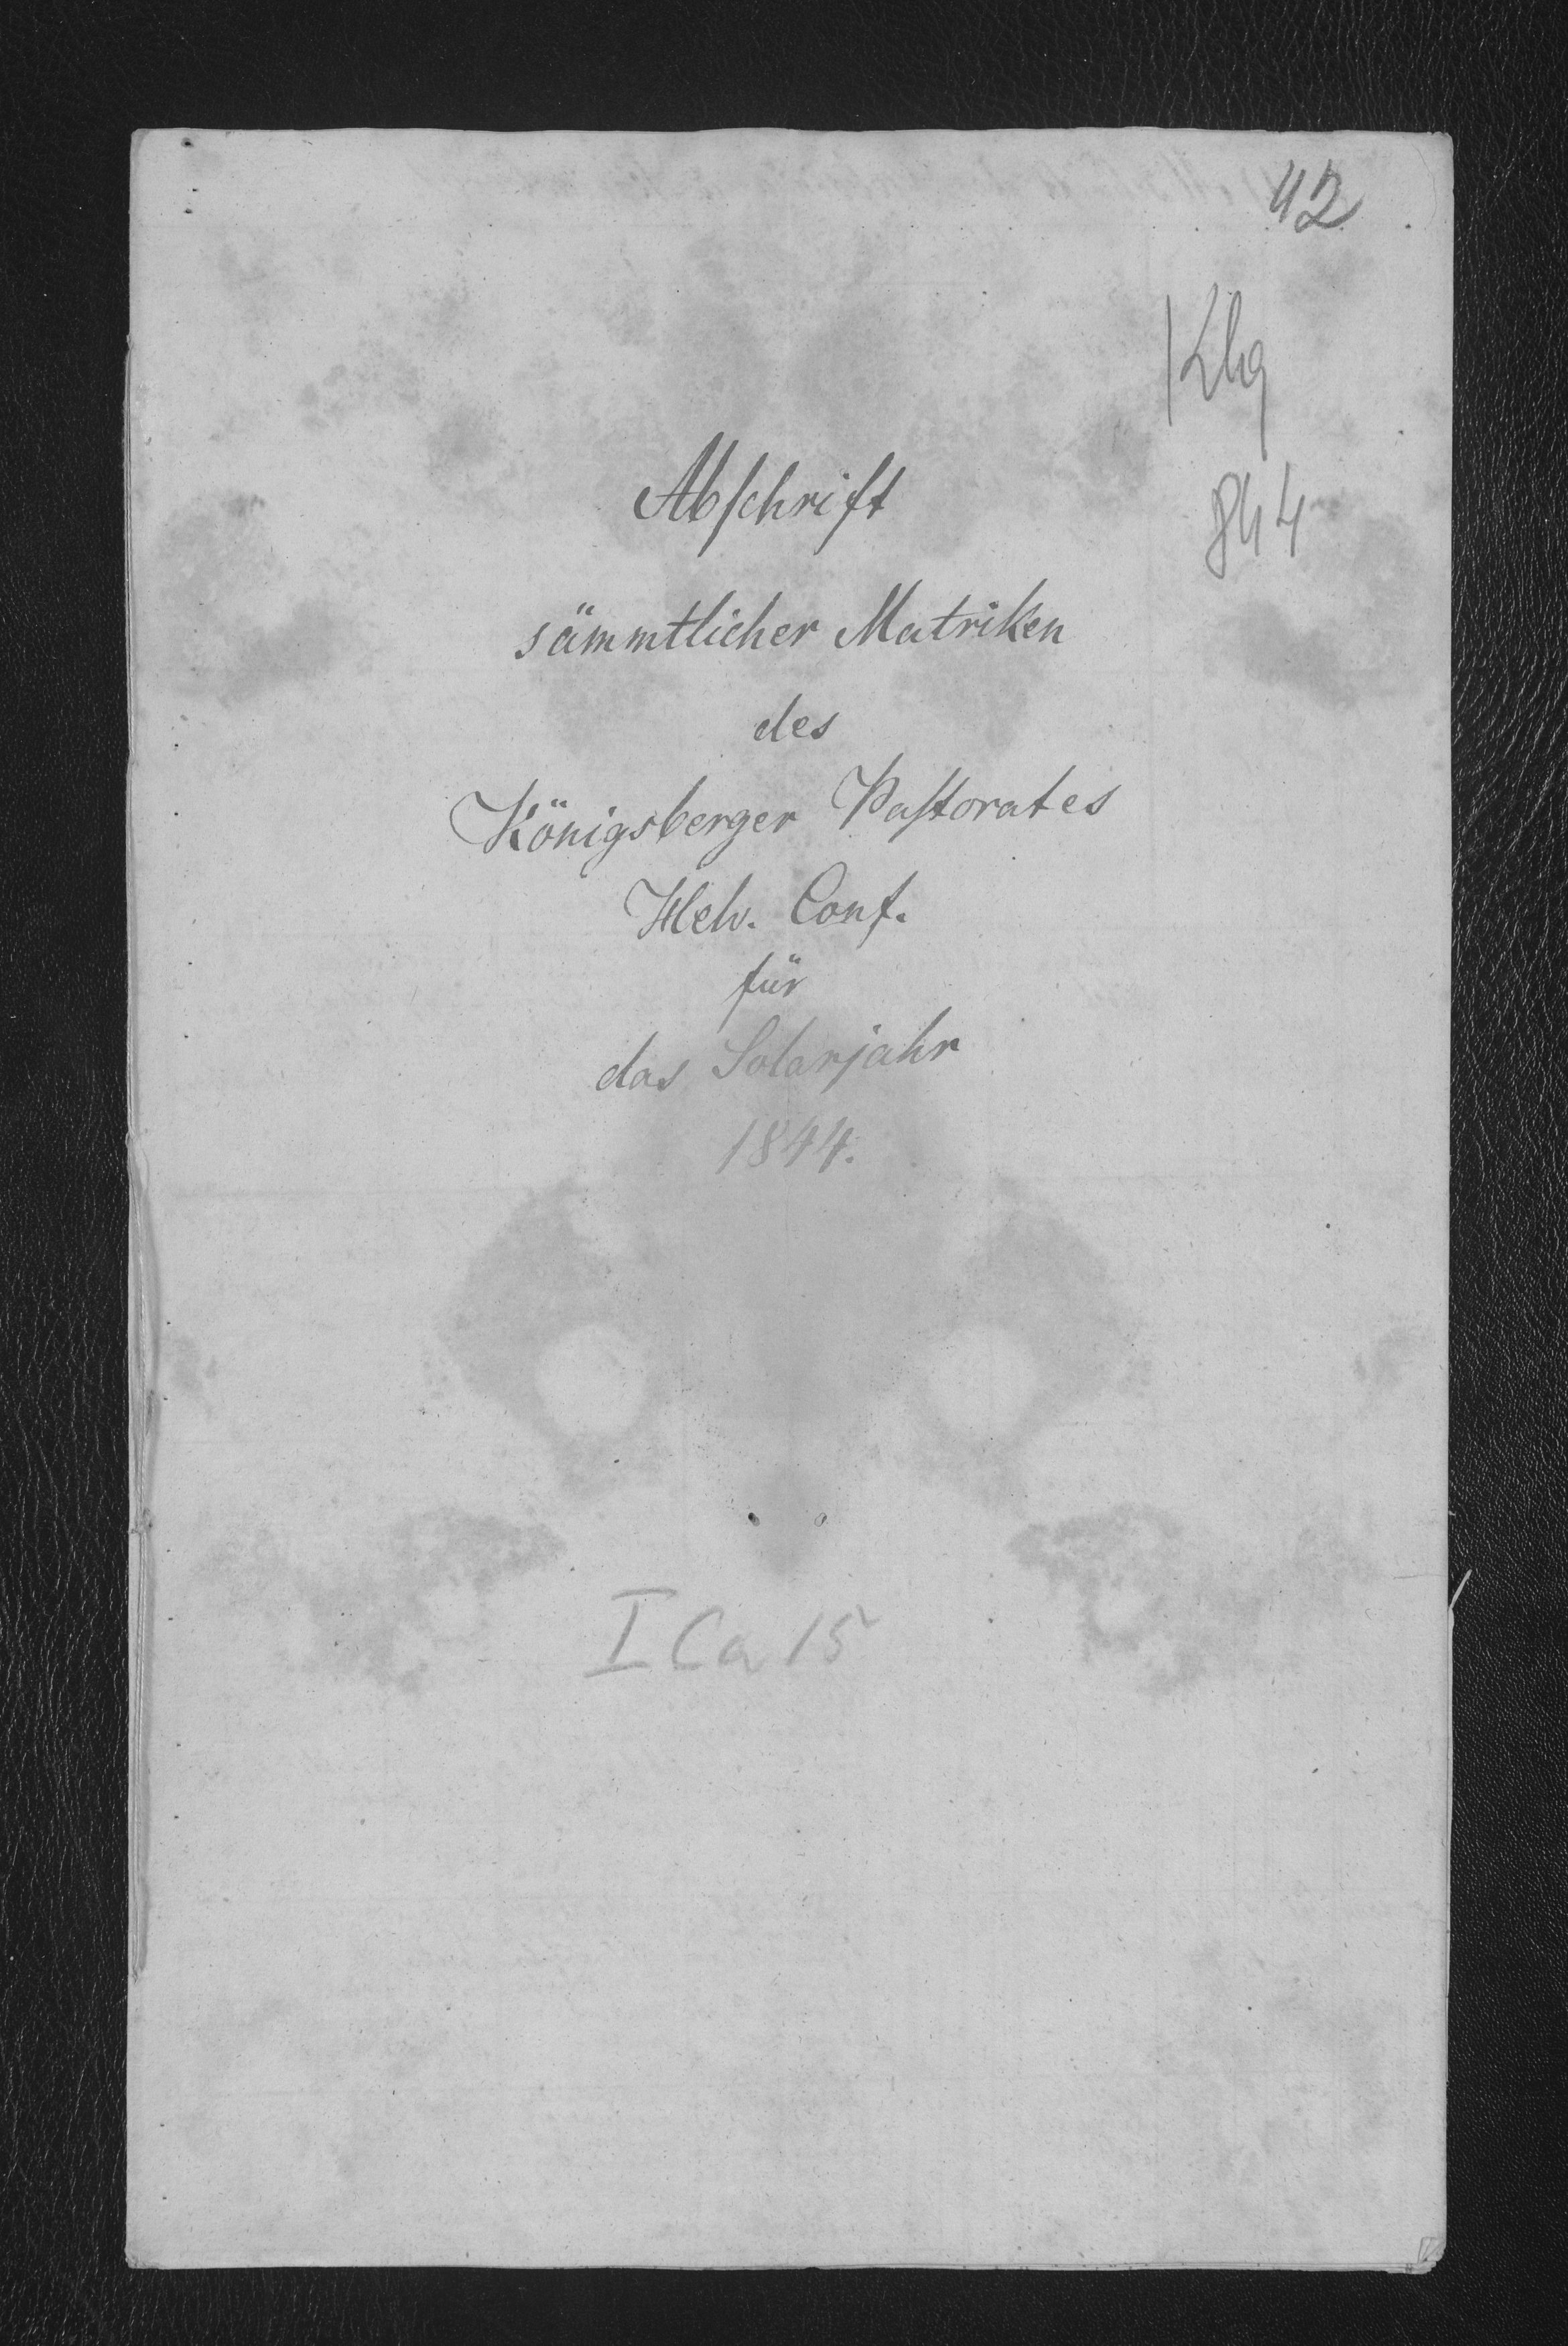 42
Kbg
844
Abschrift
sämmtlicher Matriken
des
Königsberger Pastorates
Helv. Conf.
für
das Solarjahr
1844.
I Ca 15